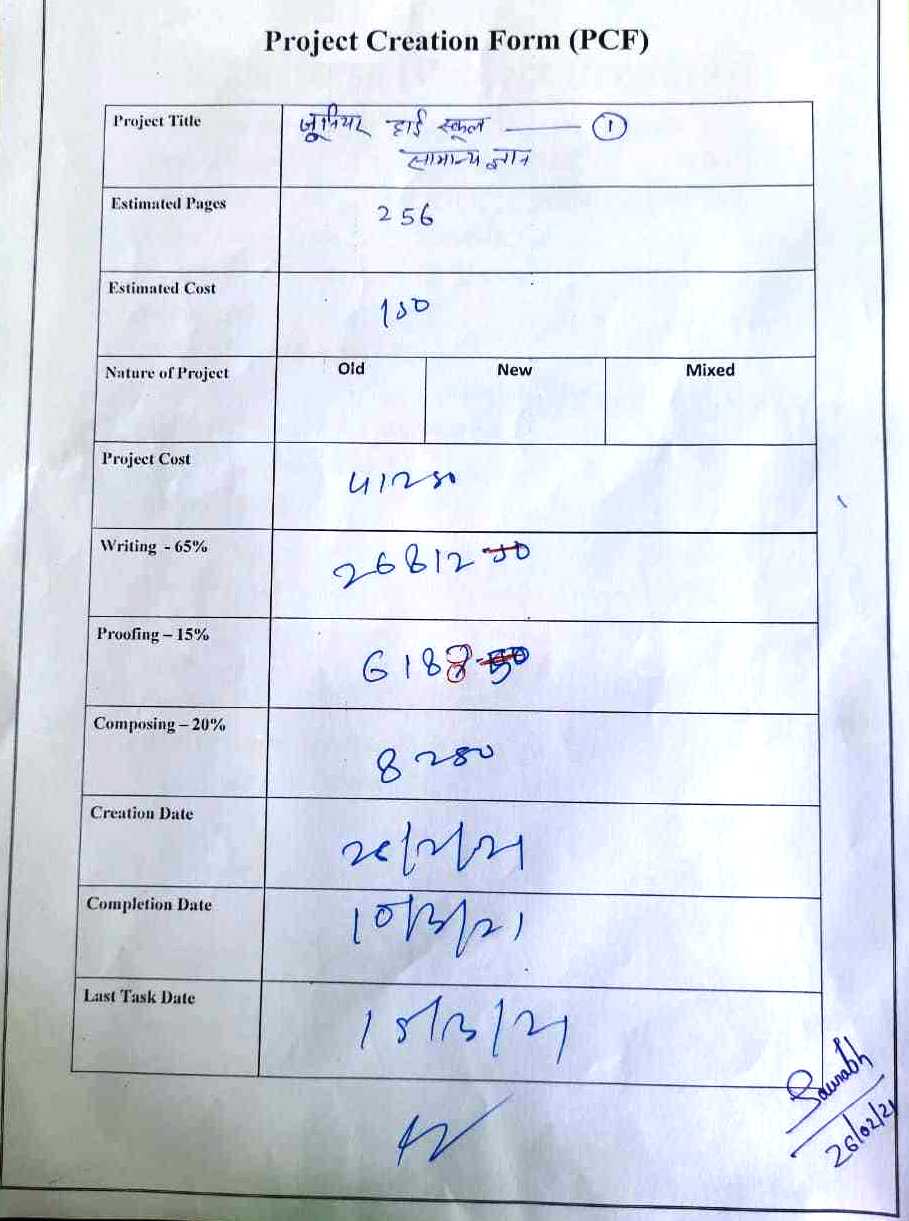 Project Creation Form (PCF)
Project Title
जूनियर हाई स्कूल —— 1
सामान्य ज्ञान
Estimated Pages
256
Estimated Cost
Nature of Project
Old New Mixed
Project Cost
41250
Writing - 65%
26812
Proofing – 15%
618
Composing – 20%
8250
Creation Date
26/2/21
Completion Date
10/3/21
Last Task Date
15/3/21
Saurabh
26/02/21